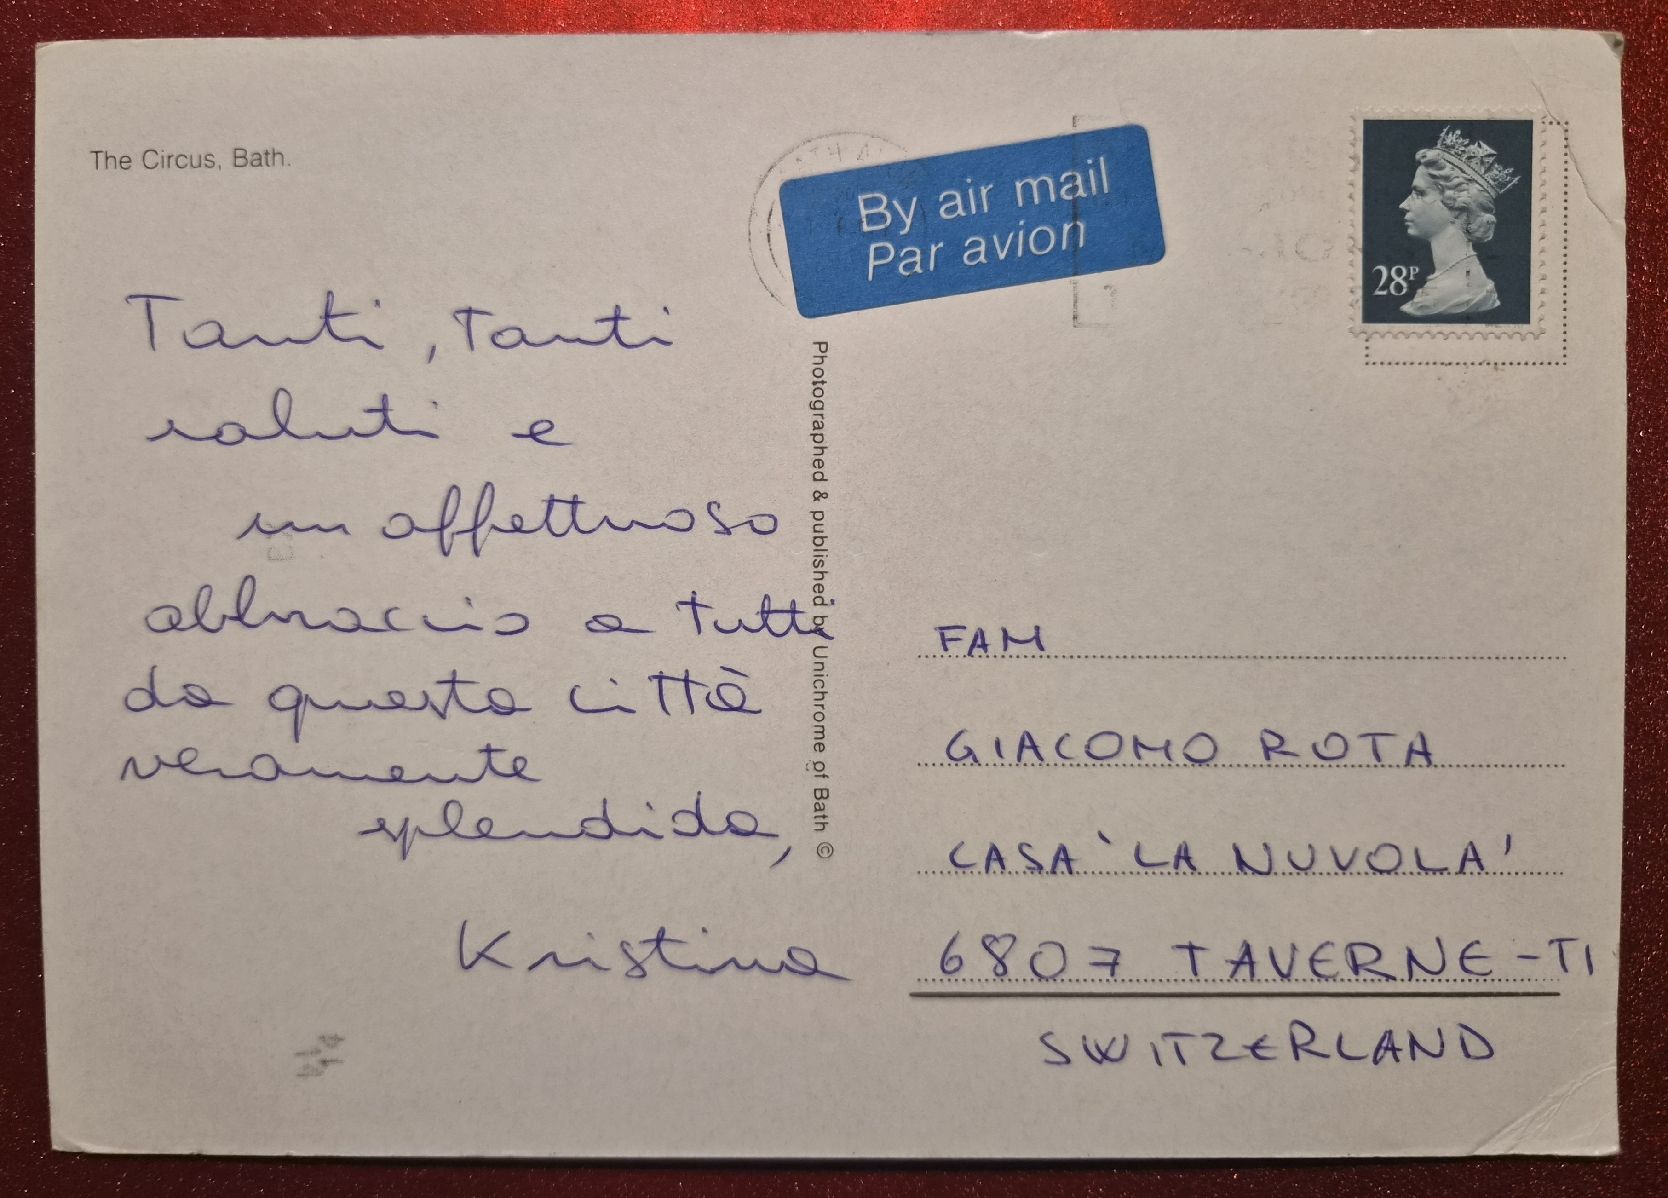 The Circus, Bath.
By air mail
Par avion
28P
Tanti, Tanti
saluti e
un affettuoso
abbraccio a tutti
da questa città
veramente
splendida,
Kristina
Photographed & published by Unichrome of Bath ©
FAM
GIACOMO ROTA
CASA 'LA NUVOLA'
6807 TAVERNE - TI
SWITZERLAND